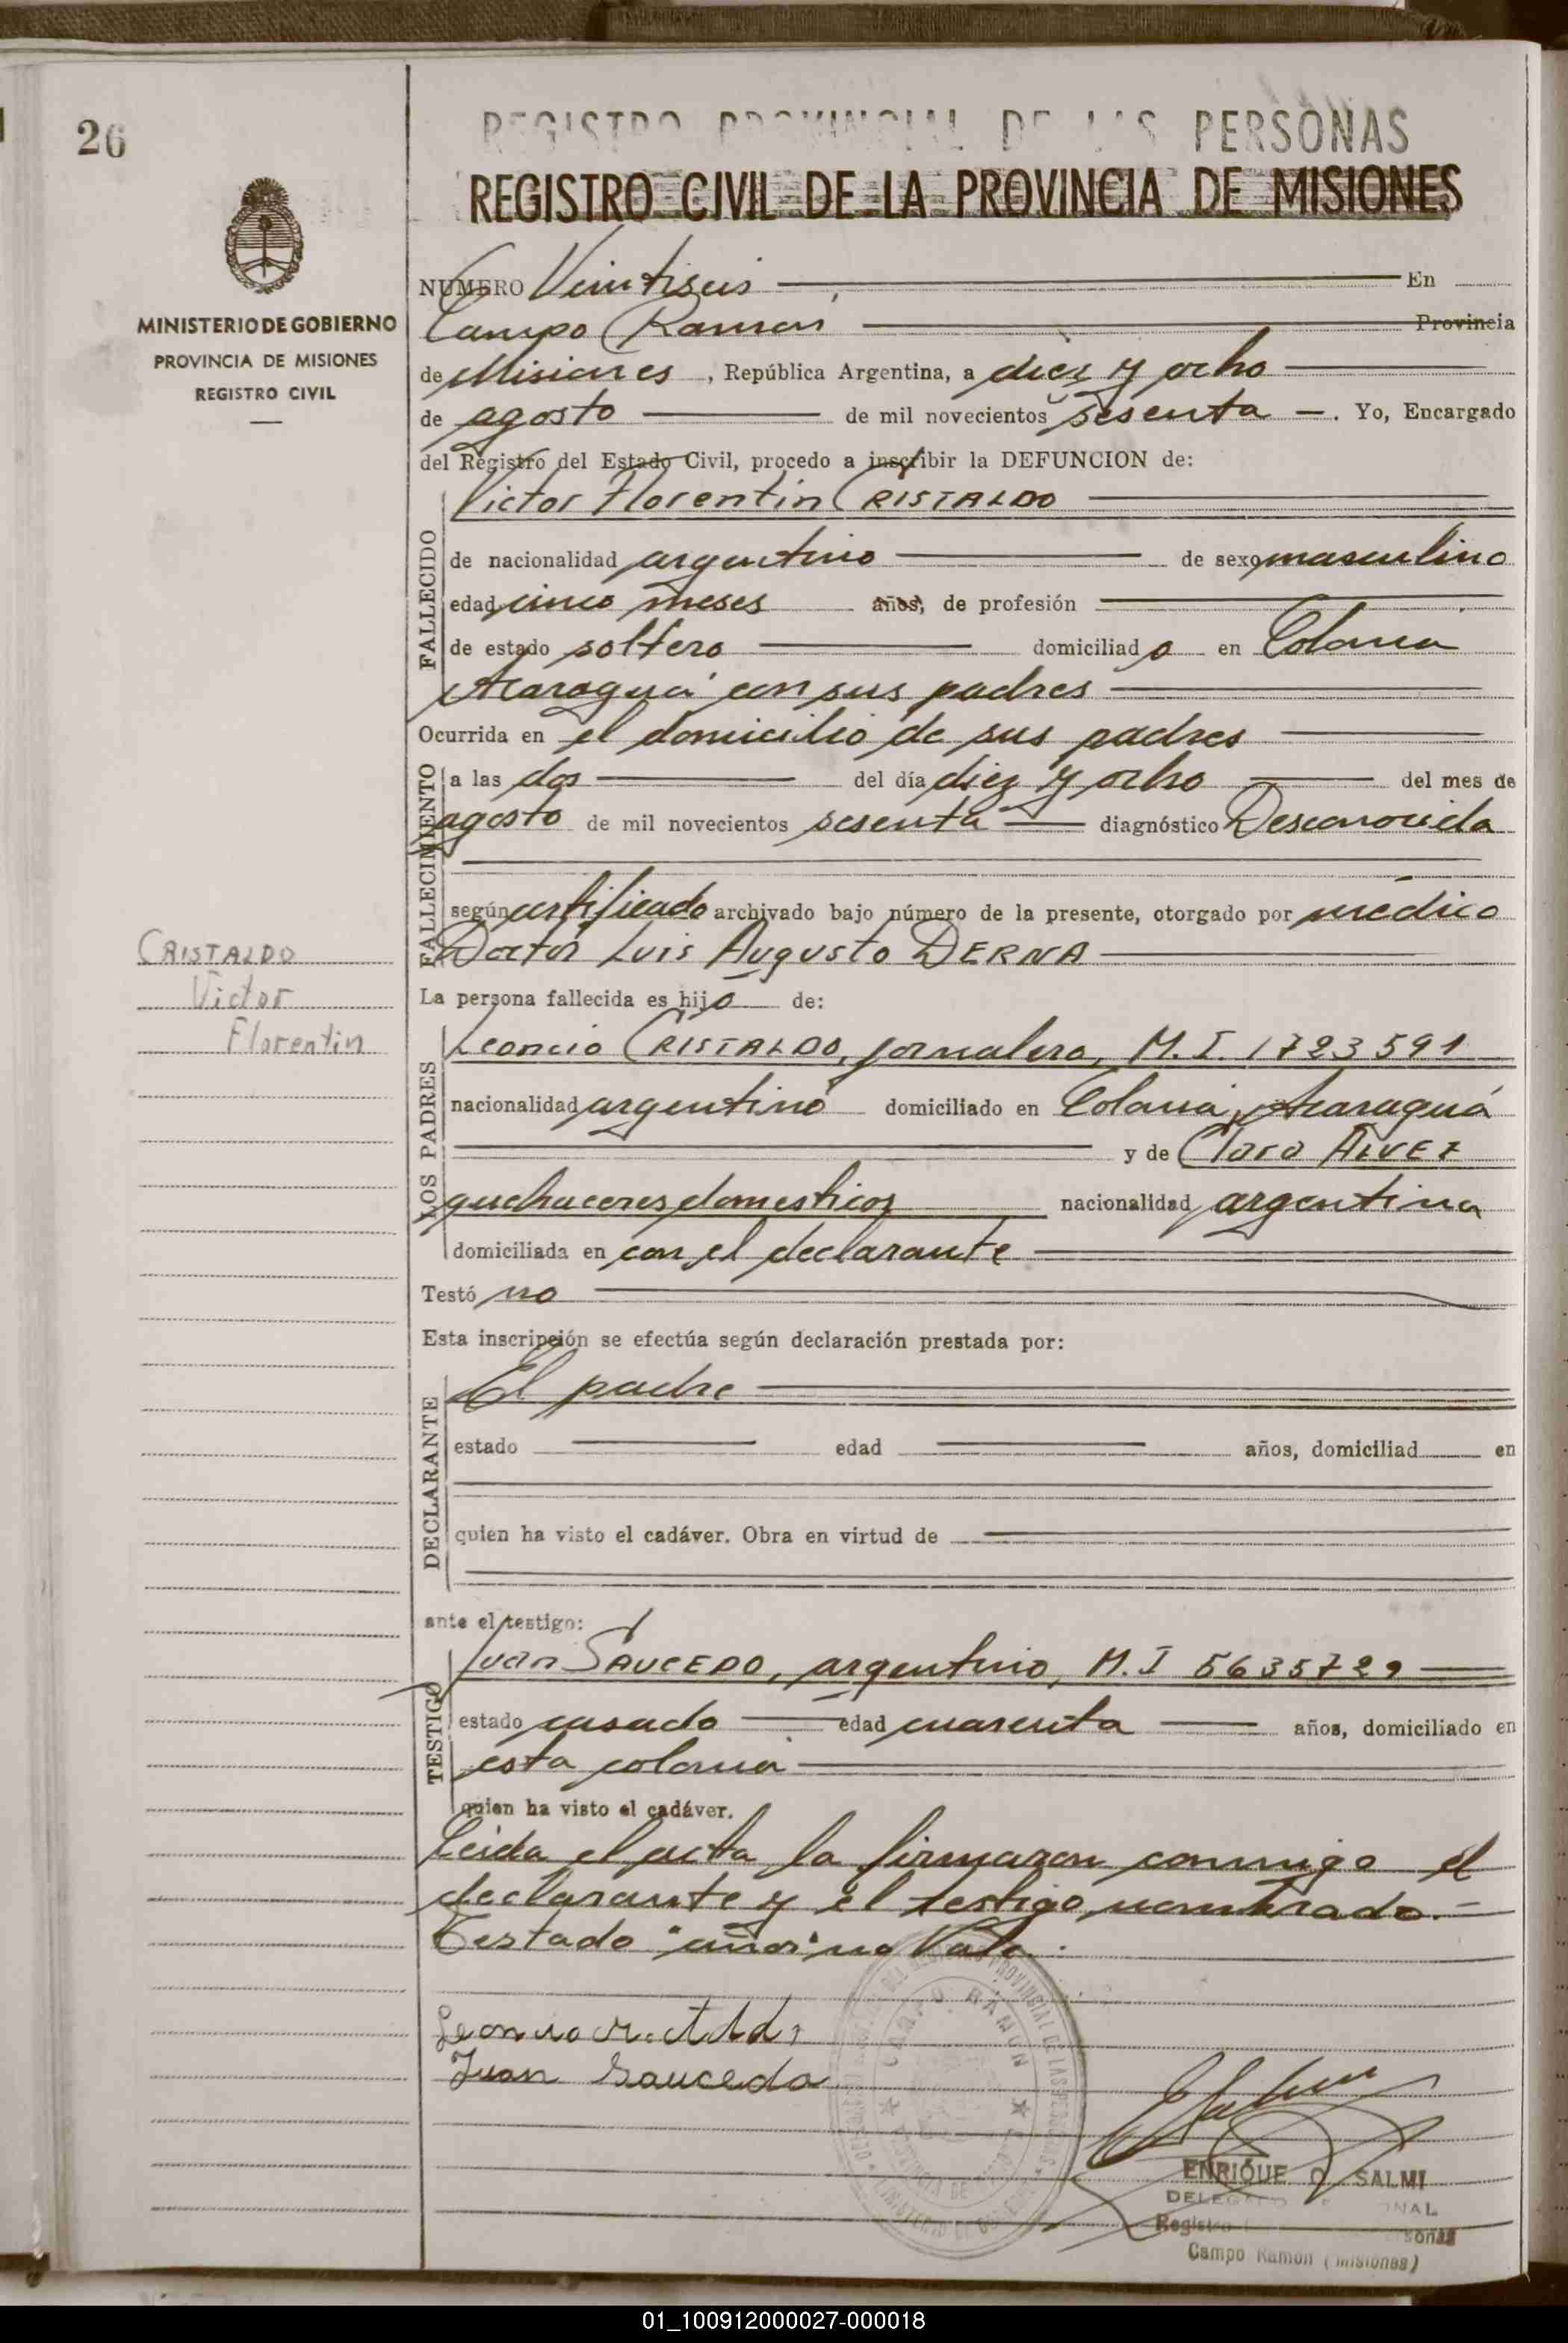 26
REGISTRO PROVINCIAL DE LAS PERSONAS
REGISTRO CIVIL DE LA PROVINCIA DE MISIONES
MINISTERIO DE GOBIERNO
PROVINCIA DE MISIONES
REGISTRO CIVIL
NUMERO Veintiseis En
Campo Ramón Provincia
de Misiones, República Argentina, a diez y ocho
de agosto de mil novecientos sesenta. Yo, Encargado
del Registro del Estado Civil, procedo a inscribir la DEFUNCION de:
Victor Florentin CRISTALDO
FALLECIDO
de nacionalidad argentino de sexo masculino
edad cinco meses años, de profesión
de estado soltero domiciliado en Colonia
Acaraguá con sus padres
Ocurrida en el domicilio de sus padres
FALLECIMIENTO
a las dos del día diez y ocho del mes de
agosto de mil novecientos sesenta diagnóstico Desconocida
según certificado archivado bajo número de la presente, otorgado por médico
Doctor Luis Augusto DERNA
CRISTALDO
Victor
Florentin
La persona fallecida es hijo de:
LOS PADRES
Leoncio CRISTALDO, jornalero, M.I. 1723591
nacionalidad argentino domiciliado en Colonia Acaraguá
y de Clara ALVEZ
quehaceres domesticos nacionalidad argentina
domiciliada en con el declarante
Testó no
Esta inscripción se efectúa según declaración prestada por:
DECLARANTE
El padre
estado edad años, domiciliad en
quien ha visto el cadáver. Obra en virtud de
ante el testigo:
TESTIGO
Juan SAUCEDO, argentino, M.I 5635729
estado casado edad cuarenta años, domiciliado en
esta colonia
quien ha visto el cadáver.
Leida el acta la firmaron conmigo el
declarante y el testigo nombrado.=
Testado "años" no Vale.
Juan Sauceda
CAMPO RAMON
ENRIQUE O. SALMI
DELEGADO
Registro
Campo Ramón (Misiones)
01_100912000027-000018